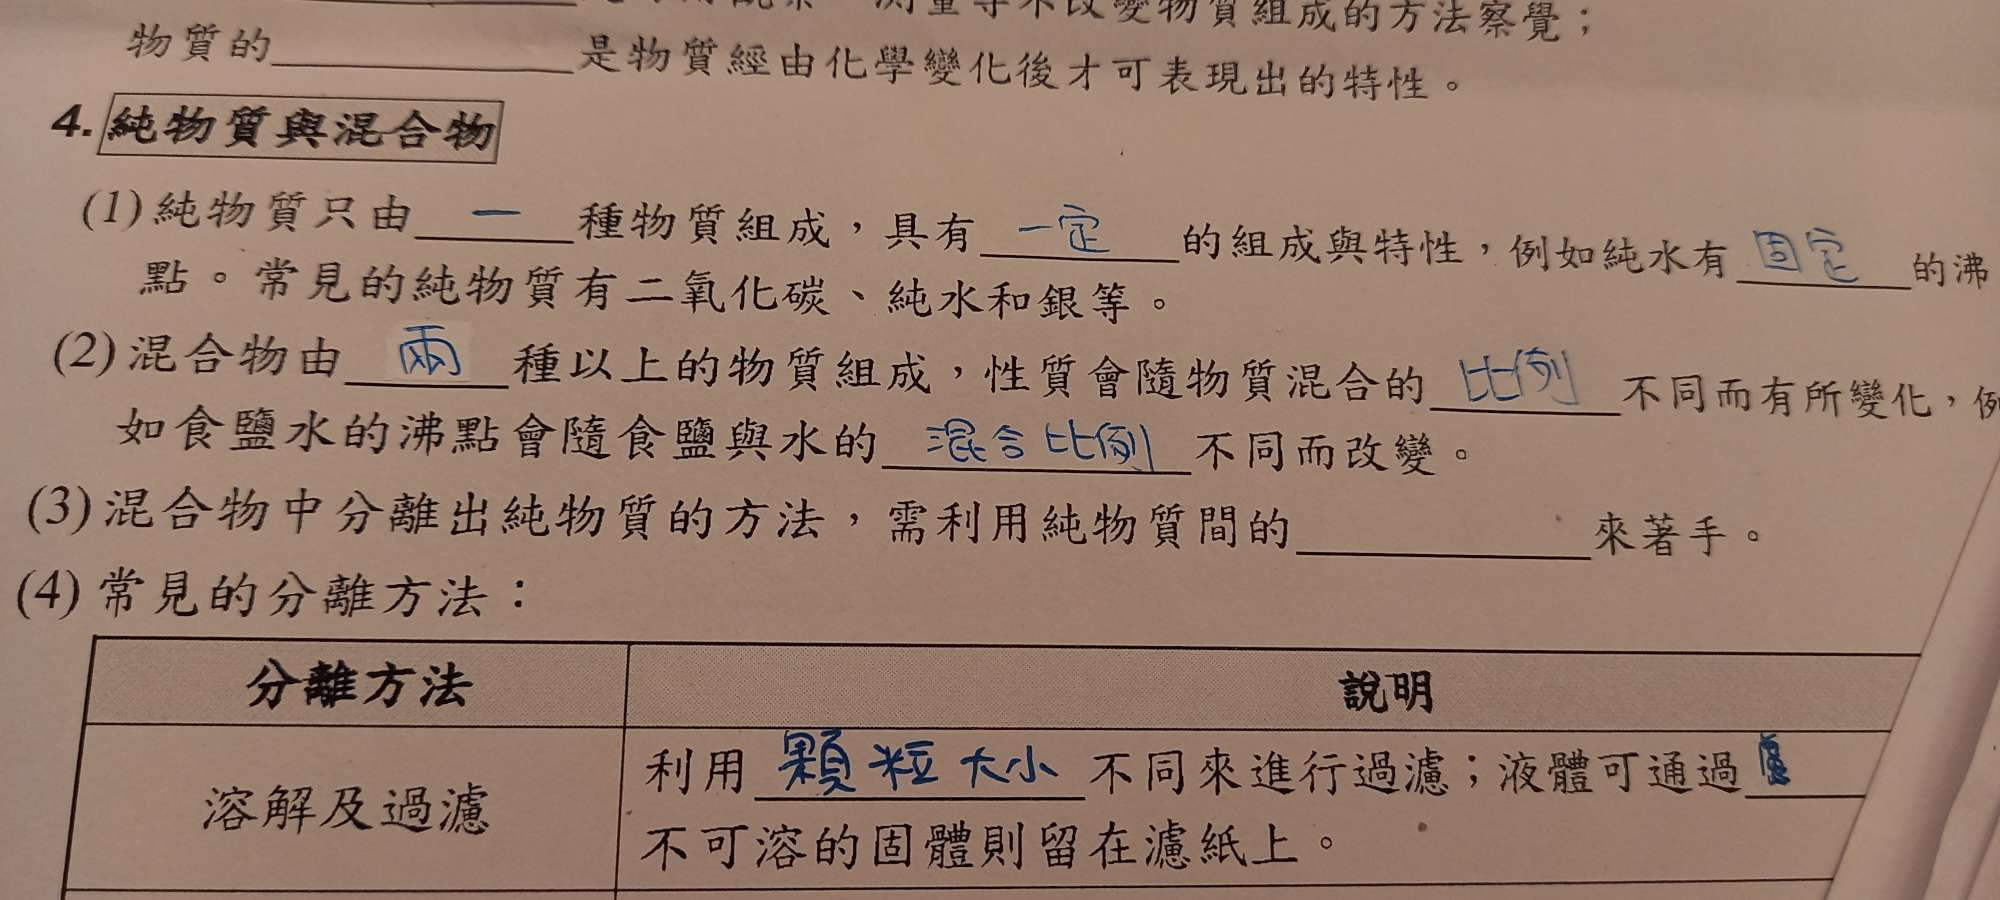 測量等不改變物質組成的方法察覺；
物質的是物質經由化學變化後才可表現出的特性。
4. 純物質與混合物
(1)純物質只由一種物質組成，具有一定的組成與特性，例如純水有固定的沸
點。常見的純物質有二氧化碳、純水和銀等。
(2)混合物由兩種以上的物質組成，性質會隨物質混合的比例不同而有所變化，例
如食鹽水的沸點會隨食鹽與水的混合比例不同而改變。
(3)混合物中分離出純物質的方法，需利用純物質間的來著手。
(4)常見的分離方法：
分離方法 說明
溶解及過濾
利用顆粒大小不同來進行過濾；液體可通過
不可溶的固體則留在濾紙上。